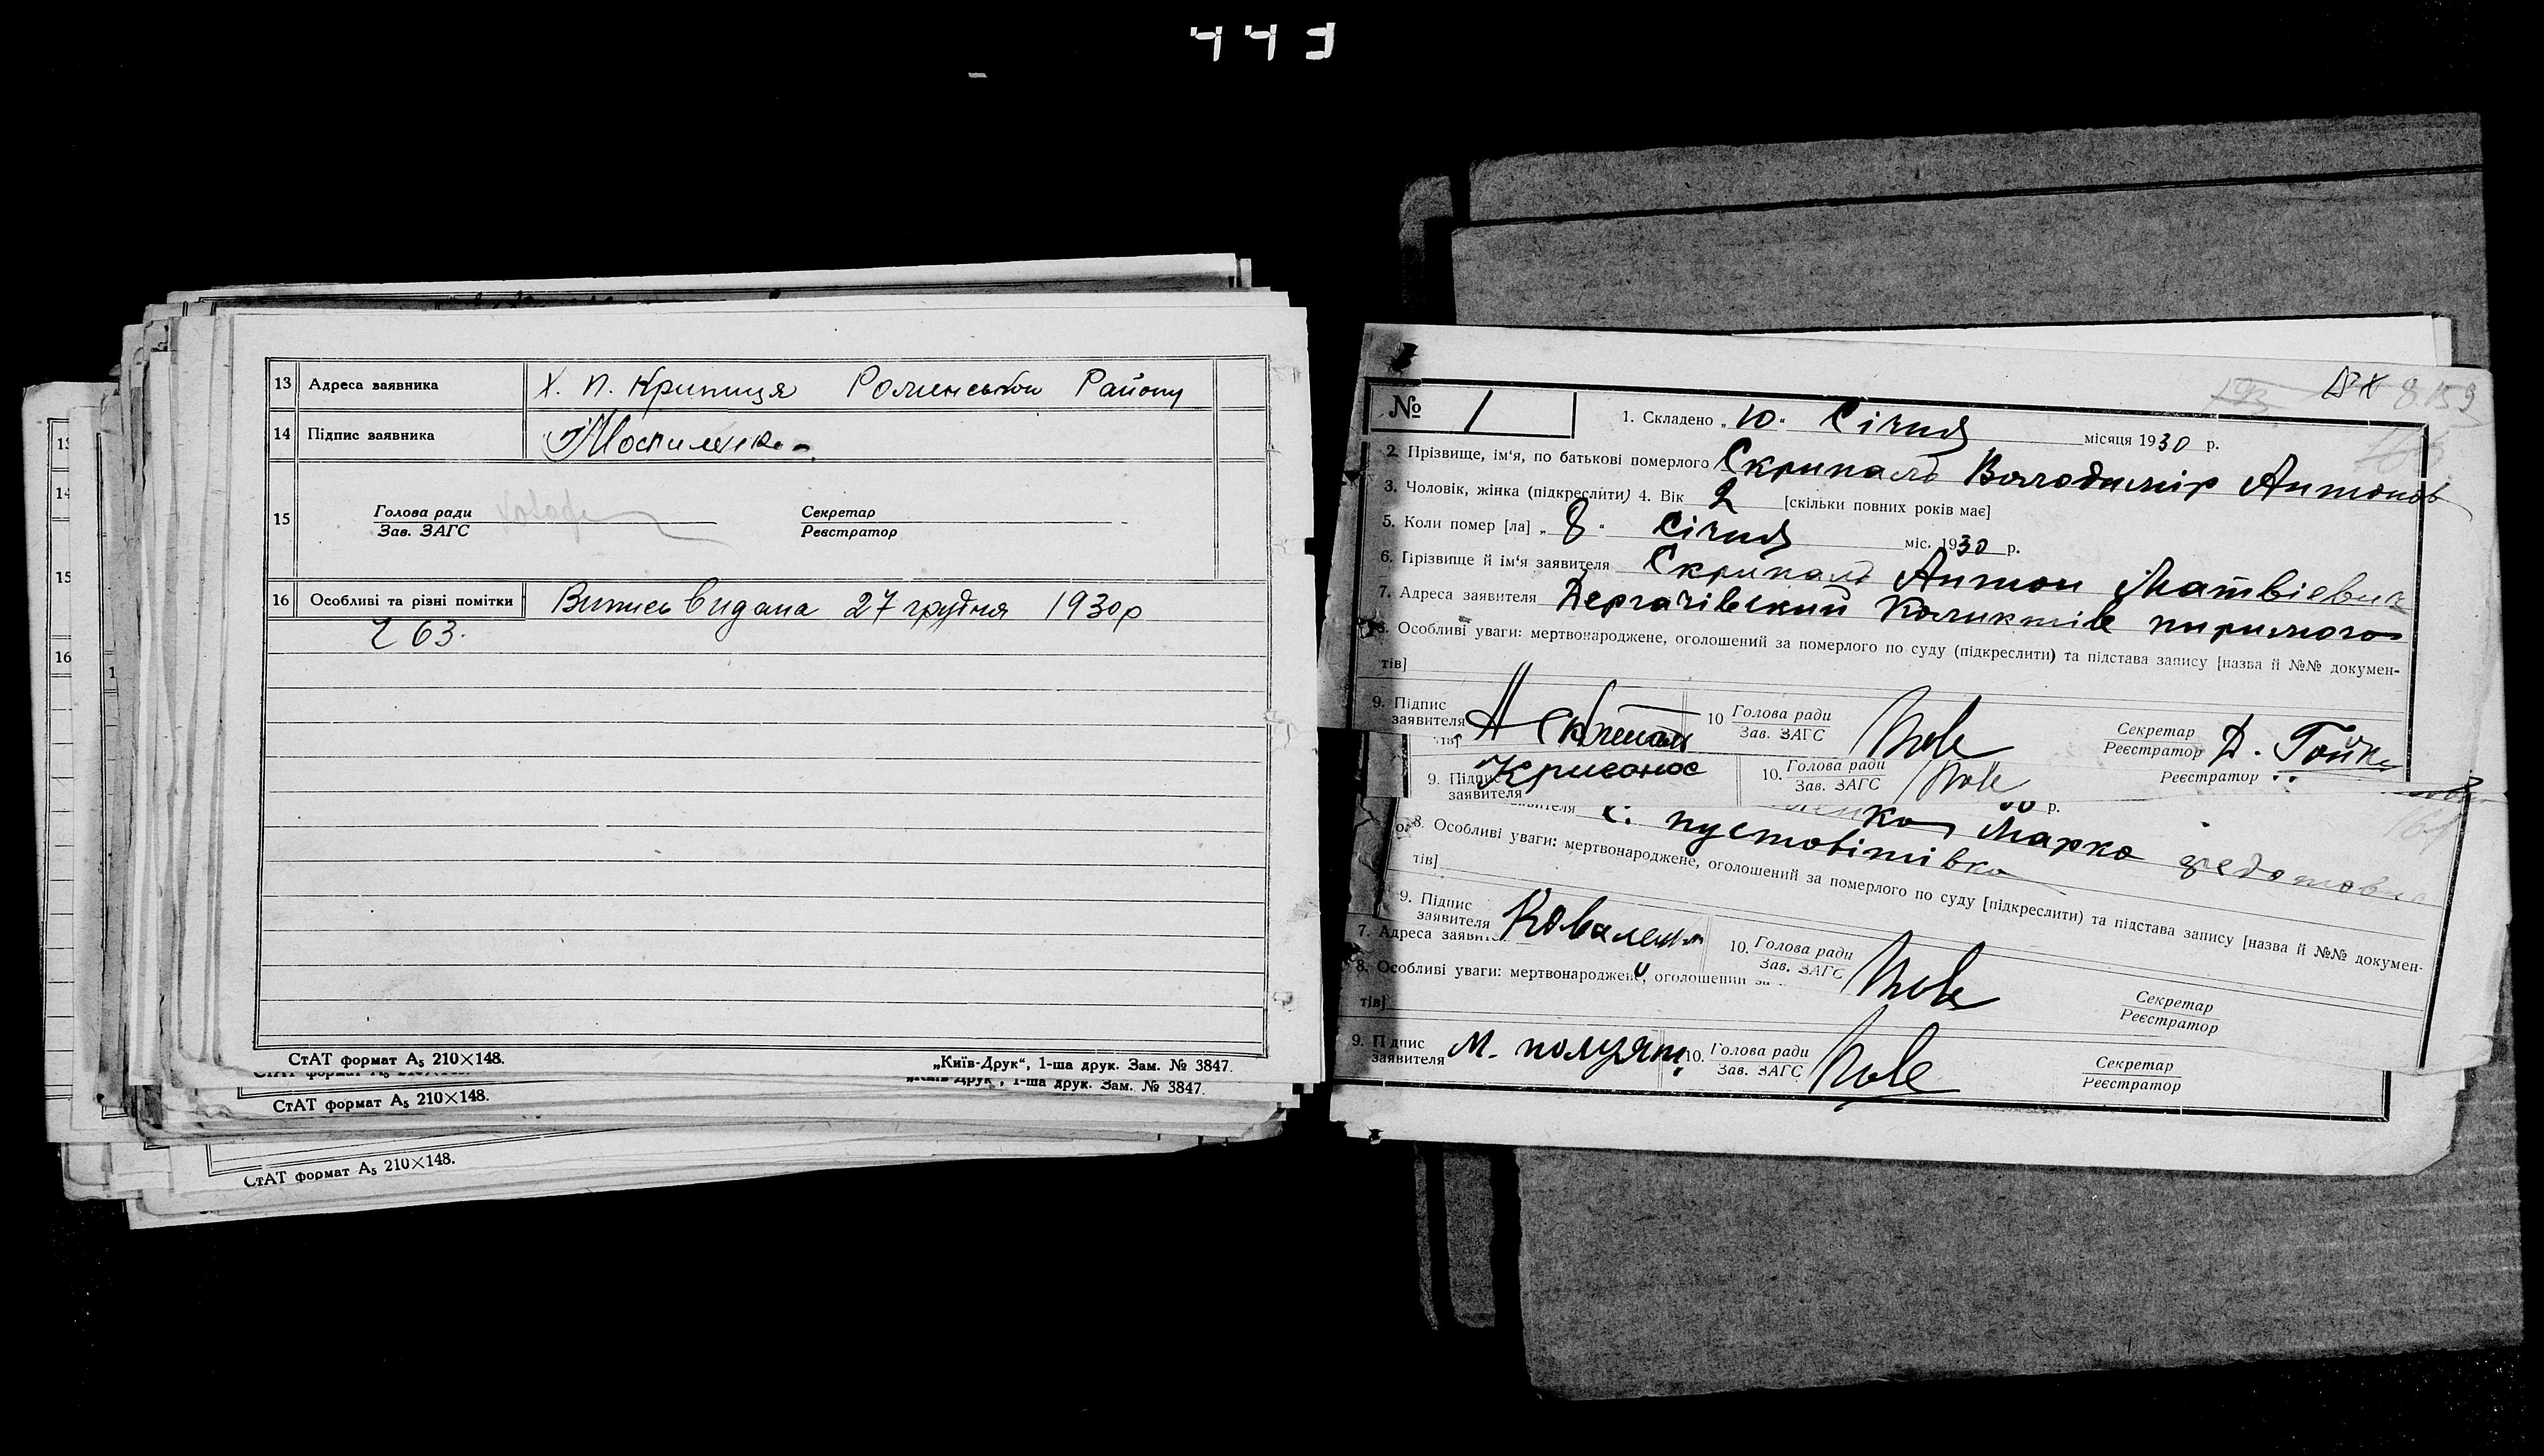 443
13 Адреса заявника Х. П. Криниця Роменської Району
14 Підпис заявника
15 Голова ради Секретар
Зав. ЗАГС Реєстратор
16 Особливі та різні помітки Випись видана 27 грудня 1930 р
263.
СтАТ формат А₅ 210×148. „Київ-Друк“, 1-ша друк. Зам. № 3847.
„Київ-Друк“, 1-ша друк. Зам. № 3847.
СтАТ формат А₅ 210×148.
СтАТ формат А₅ 210×148.
13
14
15
16
1
№ 1
1. Складено „ 10 “ Січня місяця 1930 р.
2. Прізвище, ім‘я, по батькові померлого Скрипаль Володимир Антонов
3. Чоловік, жінка (підкреслити) 4. Вік 2 [скільки повних років має]
5. Коли помер [ла] „ 8 “ Січня міс. 1930 р.
6. Прізвище й ім‘я заявителя Скрипаль Антон Матвієвич
7. Адреса заявителя Дергачівський
8. Особливі уваги: мертвонароджене, оголошений за померлого по суду (підкреслити) та підстава запису [назва й №№ докумен-
тів]
9. Підпис заявителя А Скрипаль 10 Голова ради Зав. ЗАГС Секретар Реєстратор Д.
тів]
9. Підпис заявителя Кривонос 10. Голова ради Зав. ЗАГС Реєстратор
р.
Марко
с. Пустовітівка
8. Особливі уваги: мертвонароджене, оголошений за померлого по суду [підкреслити) та підстава запису [назва й №№ докумен-
тів]
9. Підпис заявителя 10. Голова ради Зав. ЗАГС Секретар Реєстратор
7. Адреса
8. Особливі уваги: мертвонароджене, оголошений за
тів]
9. Підпис заявителя М. 10. Голова ради Зав. ЗАГС Секретар Реєстратор